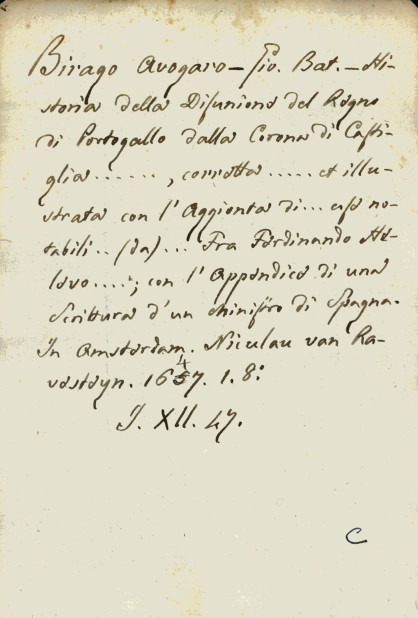 Birago Avogaro - Gio. Bat. - Hi-
storia della Disunione del Regno
di Portogallo dalla Corona di Casti-
glia ......, corretta ..... et illu-
strata con l' Aggionta di ... cose no-
tabili .. (da) ... Fra Ferdinando He-
levo ....; con l' Appendice di una
Scrittura d'un Ministro di Spagna.
In Amsterdam. Niculau van Ra-
vesteyn. 1647. 1. 8º
J. XII. 47.
C